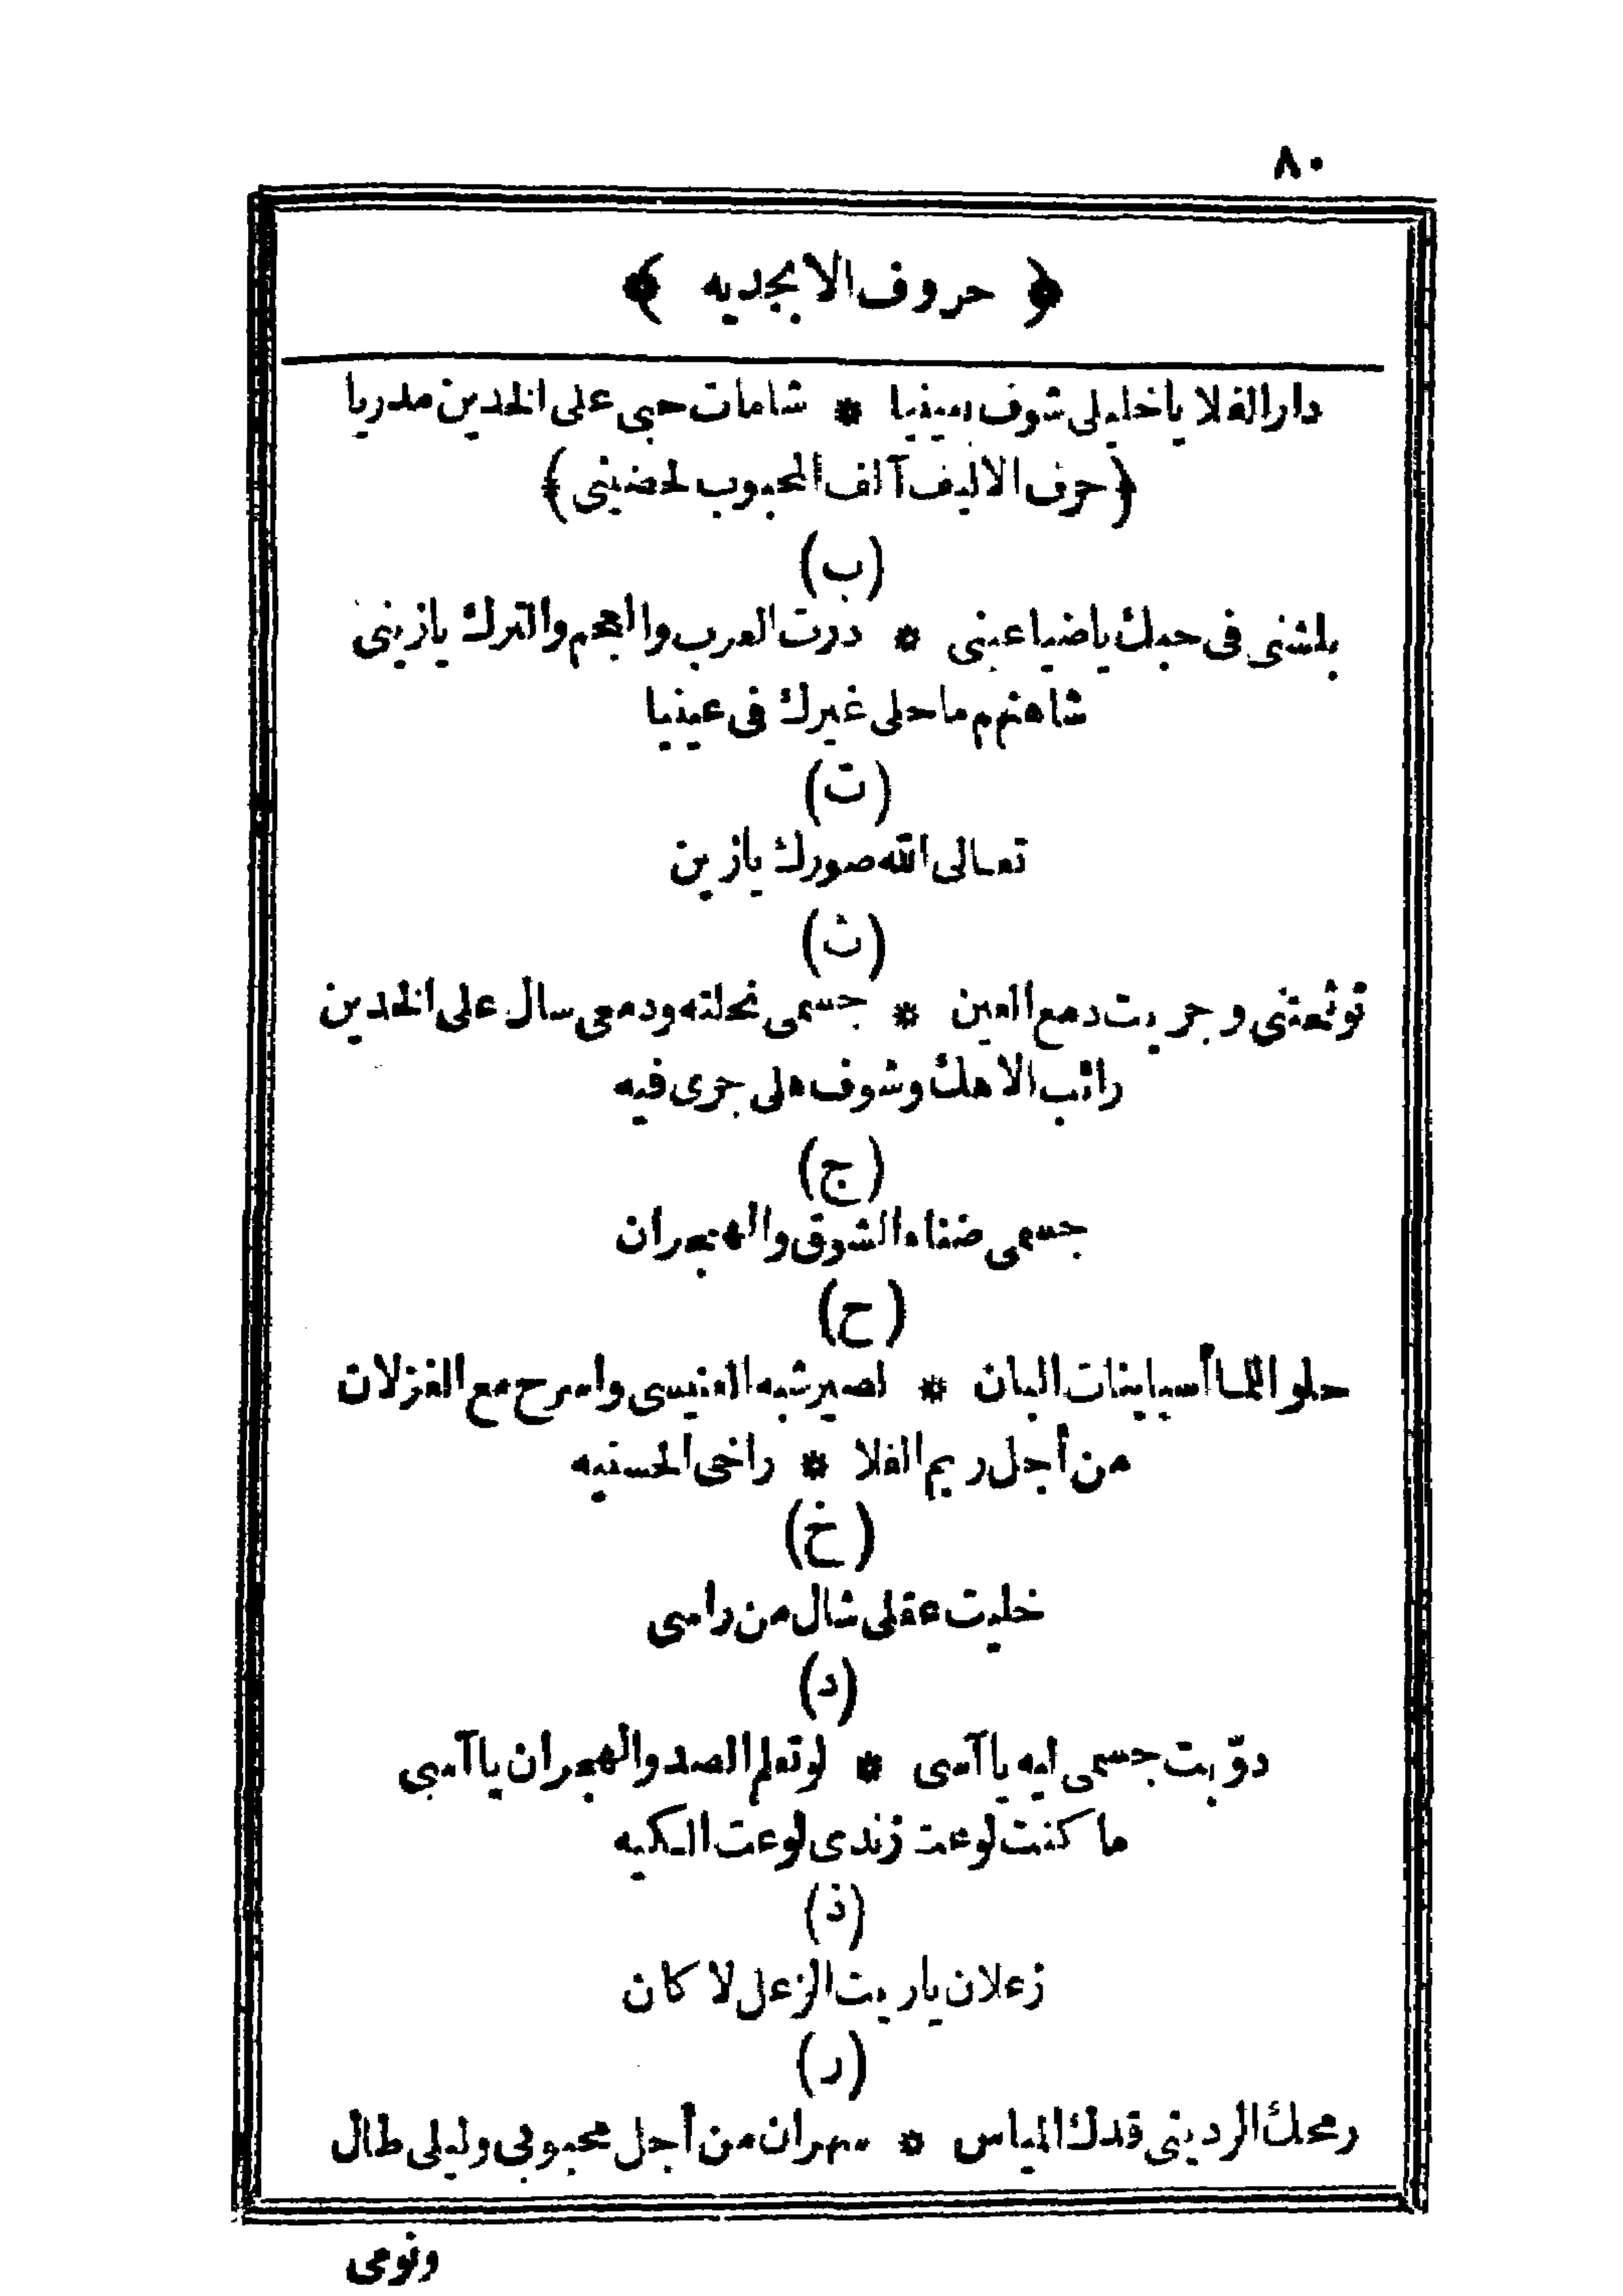 ٨٠
﴿ حروف الابجديه ﴾
دار الفلا ياخليلى شوف بعينيا * شامات حبى على الخدين مدريا
﴿حرف الاليف آلف المحبوب لحضينى﴾
(ب)
بلشنى فى حبك ياضيا عينى * درت العرب والعجم والترك يازينى
شاهنهم ماحلى غيرك فى عينيا
(ت)
تعالى الله صورك يازين
(ث)
توثعتنى وجريت دمع العين * جسمى نحلته ودمعى سال على الخدين
راقب الاهك وشوف هلى جرى فيه
(ج)
جسمى ضناه الشوق والهجران
(ح)
حلو اللما أسبابنات البان * لصير شبه العنيسى وامرح مع الغزلان
من أجل ريم الفلا * راخى الحسنيه
(خ)
خليت عقلى شال من راسى
(د)
دوّبت جسمى ليه يا آسى * لو تعلم الصد والهجران يا آسى
ما كنت لوعت زندى لوعت الكيه
(ذ)
زعلان ياريت الزعل لا كان
(ر)
رمحك الردينى قدك المياس * سهران من أجل محبوبى وليلى طال
ونومى